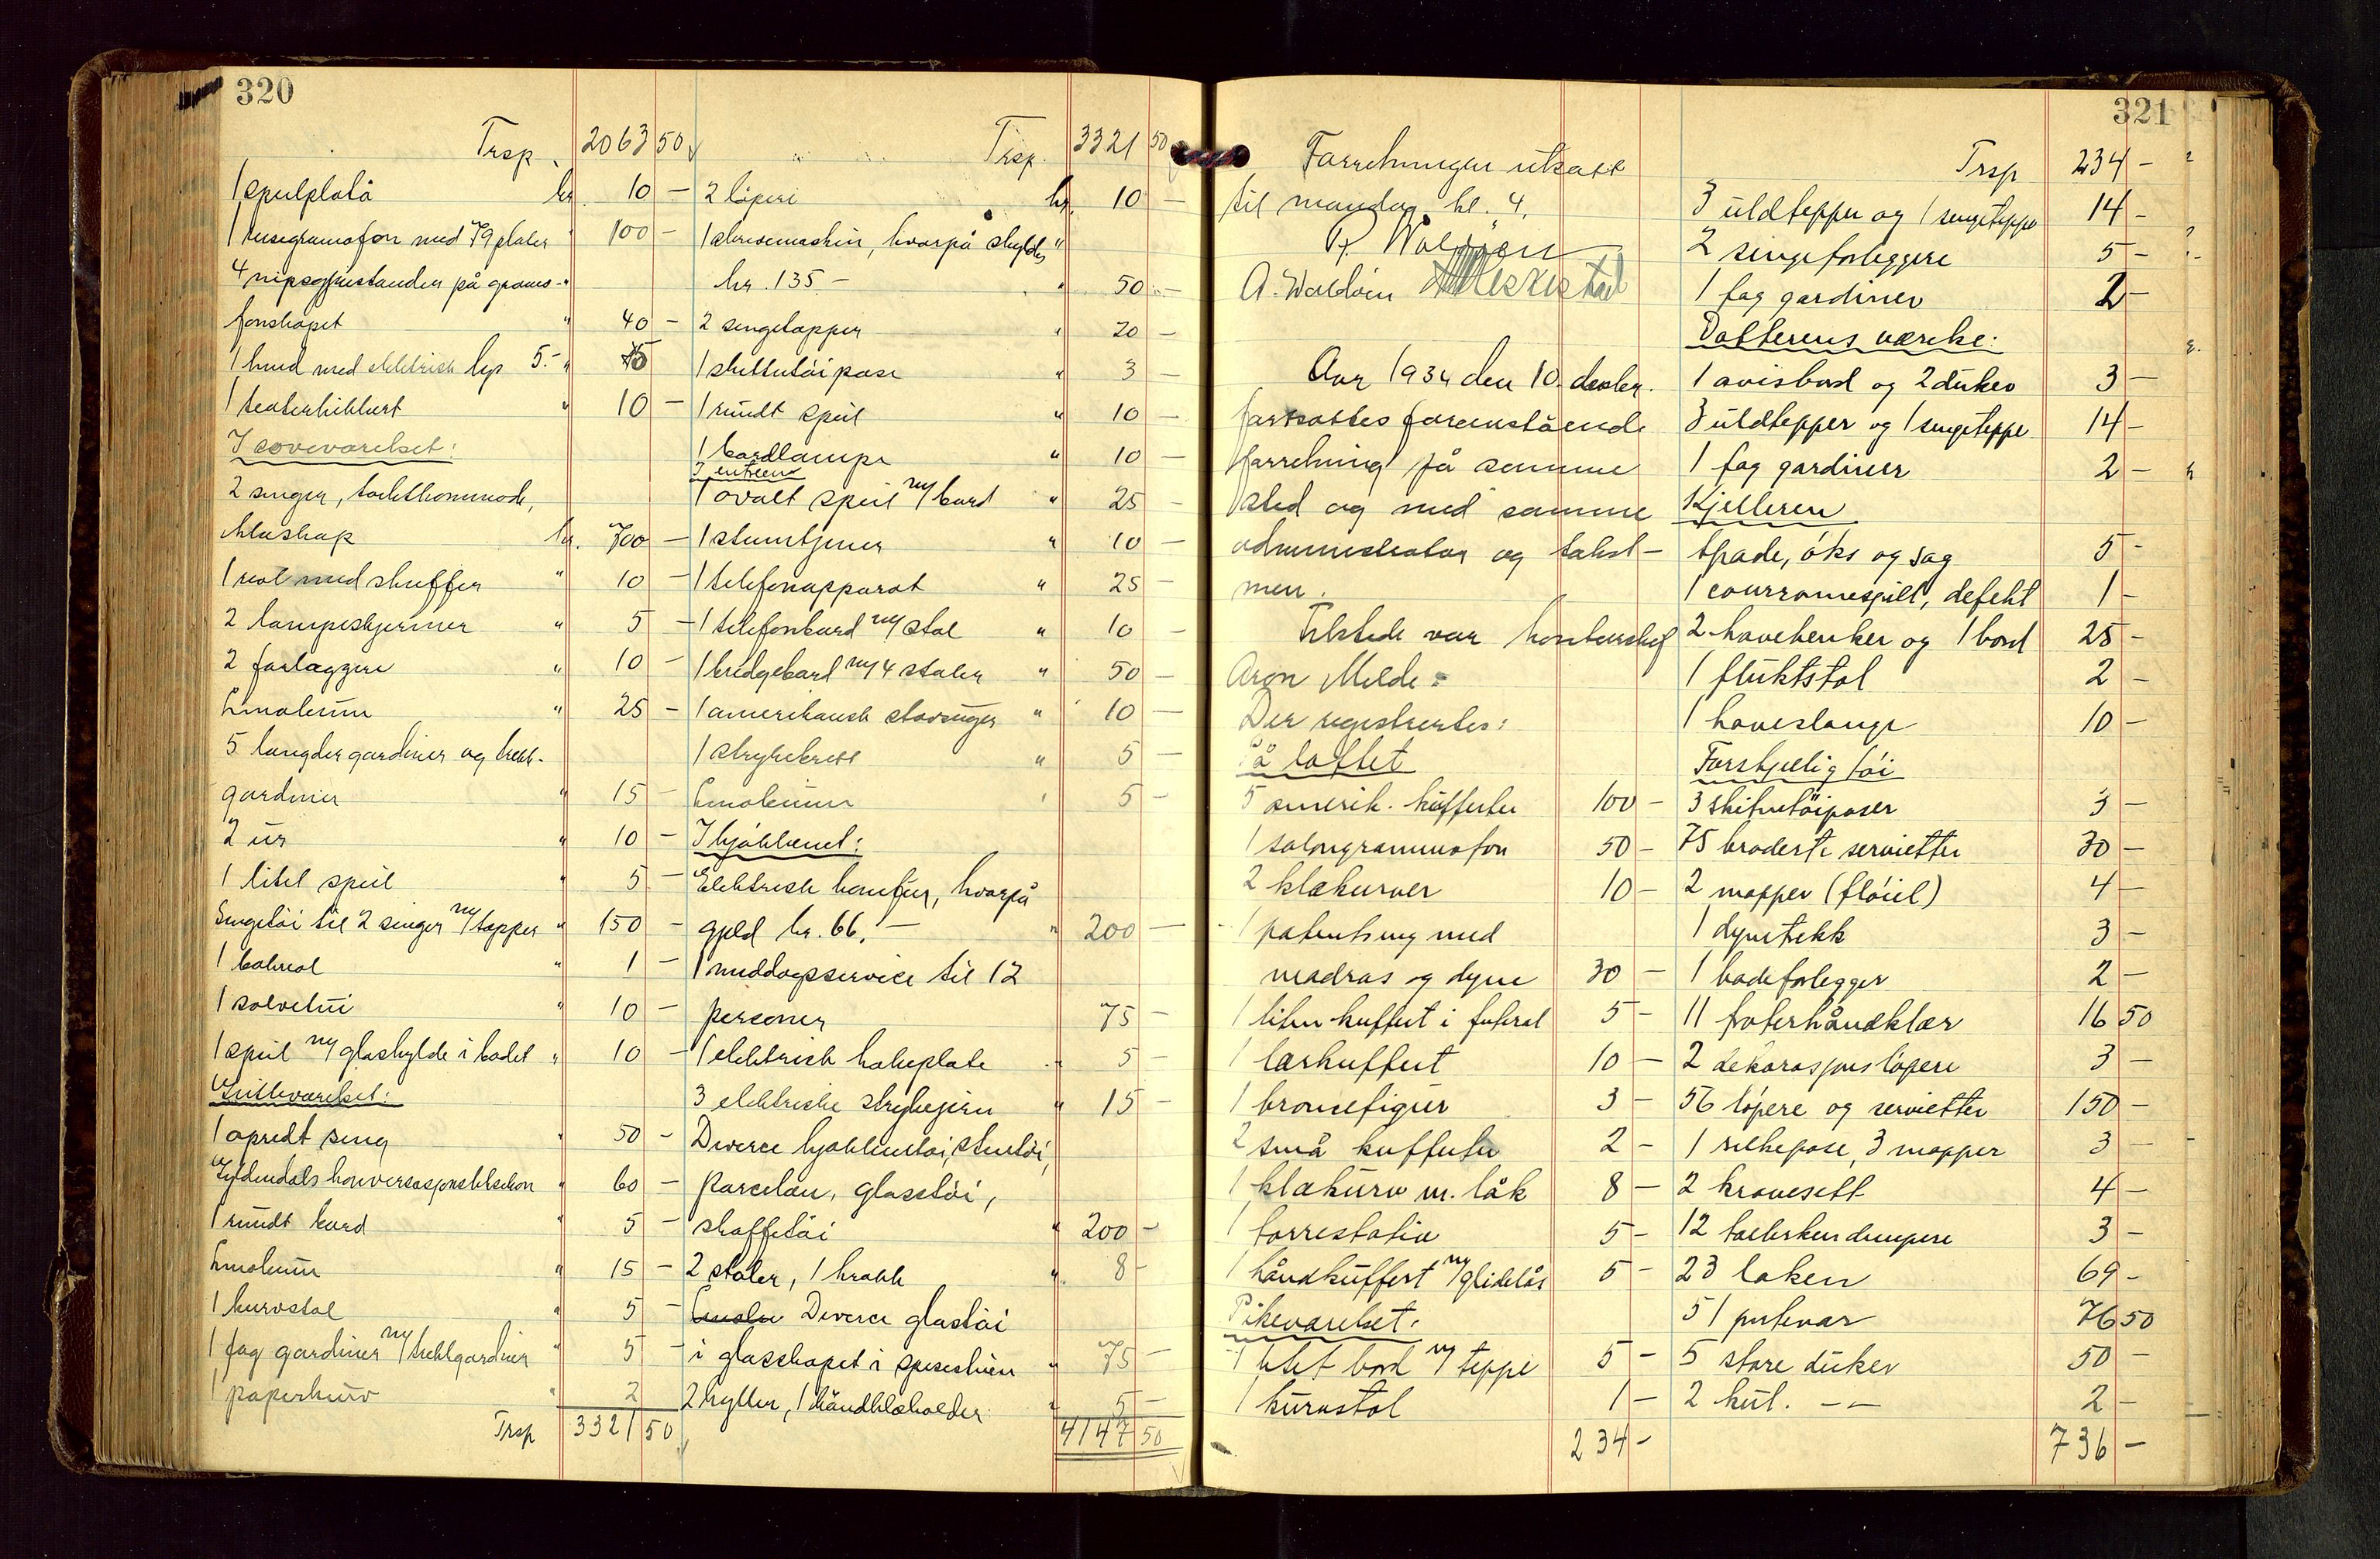 320
Trsp. 2063 50
1 speilplatå kr. 10 -
1 reisegramofon med 79 plater " 100 -
4 nipsgjenstander på gramo- "
fonskapet " 40 -
1 hund med elektrisk lys 5.- " 
1 teaterkikkert " 10 -
I soveværelset:
2 senger, toilettkommode,
klæskap kr. 700 -
1 reol med skuffer " 10 -
2 lampeskjermer " 5 -
2 forlæggere " 10 -
Linoleum " 25 -
5 lengder gardiner og trekk-
gardiner " 15 -
2 ur " 10 -
1 litet speil " 5 -
Sengetøi til 2 senger m/tepper " 150 -
1 " 1 -
1 " 10 -
1 speil m/glashylde i badet " 10 -
Gutteværelset:
1 opredt seng " 50 -
Gyldendals konversasjonsleksikon " 60 -
1 rundt bord " 5 -
Linoleum " 15 -
1 kurvstol " 5 -
1 fag gardiner m/trekkgardiner " 5 -
1 papirkurv " 2
Trsp 3321 50
Trsp. 3321 50
2 løpere kr. 10 -
1 skrivemaskin, hvorpå skyldes "
kr. 135 - " 50 -
2 sengetepper " 20 -
1 skittentøipose " 3 -
1 rundt speil " 10 -
1 bordlampe " 10 -
I entreen
1 ovalt speil m/bord " 25 -
1 stumtjener " 10 -
1 telefonapparat " 25 -
1 telefonbord m/stol " 10 -
1 bridgebord m/4 stoler " 50 -
1 amerikansk støvsuger " 10 -
1 strykebrett " 5 -
Linoleum " 5 -
I kjøkkenet:
Elektrisk komfur, hvorpå
gjeld kr. 66.- " 200 -
1 middagsservice til 12
personer 75 -
1 elektrisk kokeplate " 5 -
3 elektriske strykejern " 15 -
Diverse kjøkkentøi, stentøi,
porcelæn, glasstøi,
skaffetøi " 200 -
2 stoler, 1 krakk " 8 -
Diverse glastøi
i glasskapet i spisestuen " 75 -
2 hyller, 1 håndklæholder " 5 -
4147 50
321
Forretningen utsatt
til mandag kl. 4.
A. Waldöien
Aar 1934 den 10. desbr.
fortsattes foranstående
forretning på samme
sted og med samme
administrator og takst-
men.
Tilstede var kontorchef
Aron Melde.
Der registrertes:
På loftet
5 amerik. kufferter 100 -
1 salongrammofon 50 -
2 klækurver 10 -
1 patentseng med
madras og dyne 30 -
1 liten kuffert i futeral 5 -
1 lærkuffert 10 -
1 broncefigur 3 -
2 små kufferter 2 -
1 klækurv m. låk 8 -
1 tørrestativ 5 -
1 håndkuffert m/glidelås 5 -
Pikeværelset:
1 litet bord m/teppe 5 -
1 kurvstol 1 -
234 -
Trsp 234 -
3 uldtepper og 1 sengeteppe 14 -
2 sengeforleggere 5 -
1 fag gardiner 2 -
Datterens værelse:
1 avisbord og 2 duker 3 -
3 uldtepper og 1 sengeteppe 14 -
1 fag gardiner 2 -
Kjelleren
Spade, øks og sag 5 -
1 , defekt 1 -
2 havebenker og 1 bord 25 -
1 fluktstol 2 -
1 haveslange 10 -
Forskjelig tøi
3 skittentøiposer 3 -
75 broderte servietter 30 -
2 mapper (fløiel) 4 -
1 dynetrekk 3 -
1 badeforlegger 2 -
11 froterhåndklær 16 50
2 dekorasjonsløpere 3 -
56 løpere og servietter 150 -
1 silkepose, 3 mapper 3 -
2 kravesett 4 -
12 tallerkendempere 3 -
23 laken 69 -
51 putevar 76 50
5 store duker 50 -
2 kul. - - 2 -
736 -